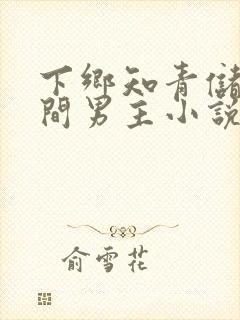 下鄉知青儲
間男主小説
俞雪花